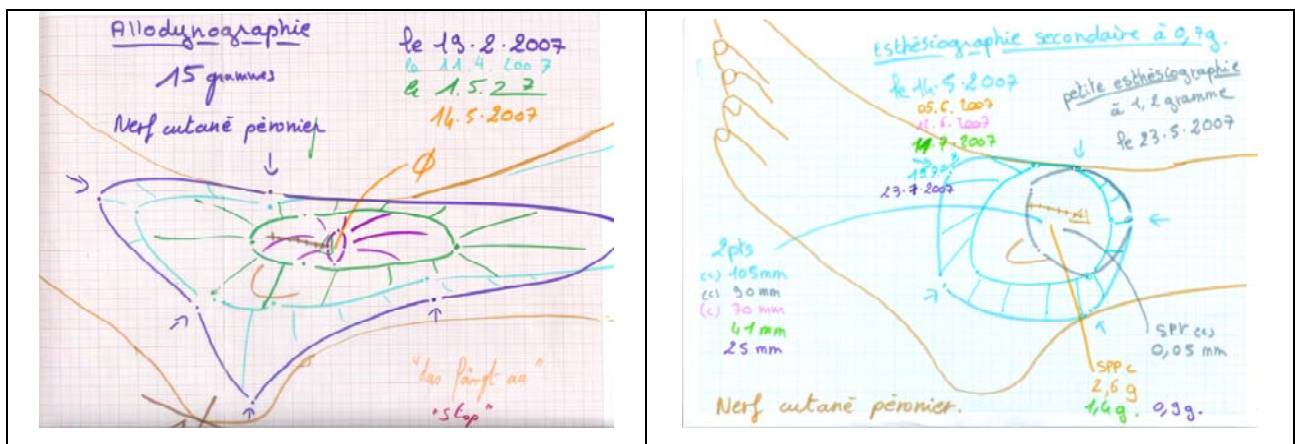 Allodynographie
15 grammes
Nerf cutané péronier
le 19.2.2007
le 11.4.2007
le 1.5.27
14.5.2007
Φ
"das fängt aa"
"stop"
Esthésiographie secondaire à 0,7g.
le 14.5.2007
05.6.2007
7.2007
23.7.2007
petite esthésiographie
à 1,2 gramme
le 23.5.2007
2pts
105mm
90mm
(c) 70 mm
41 mm
25 mm
SPP
0,05 mm
SPP c
2,6 g
1,4g. 0,9g.
Nerf cutané péronier.